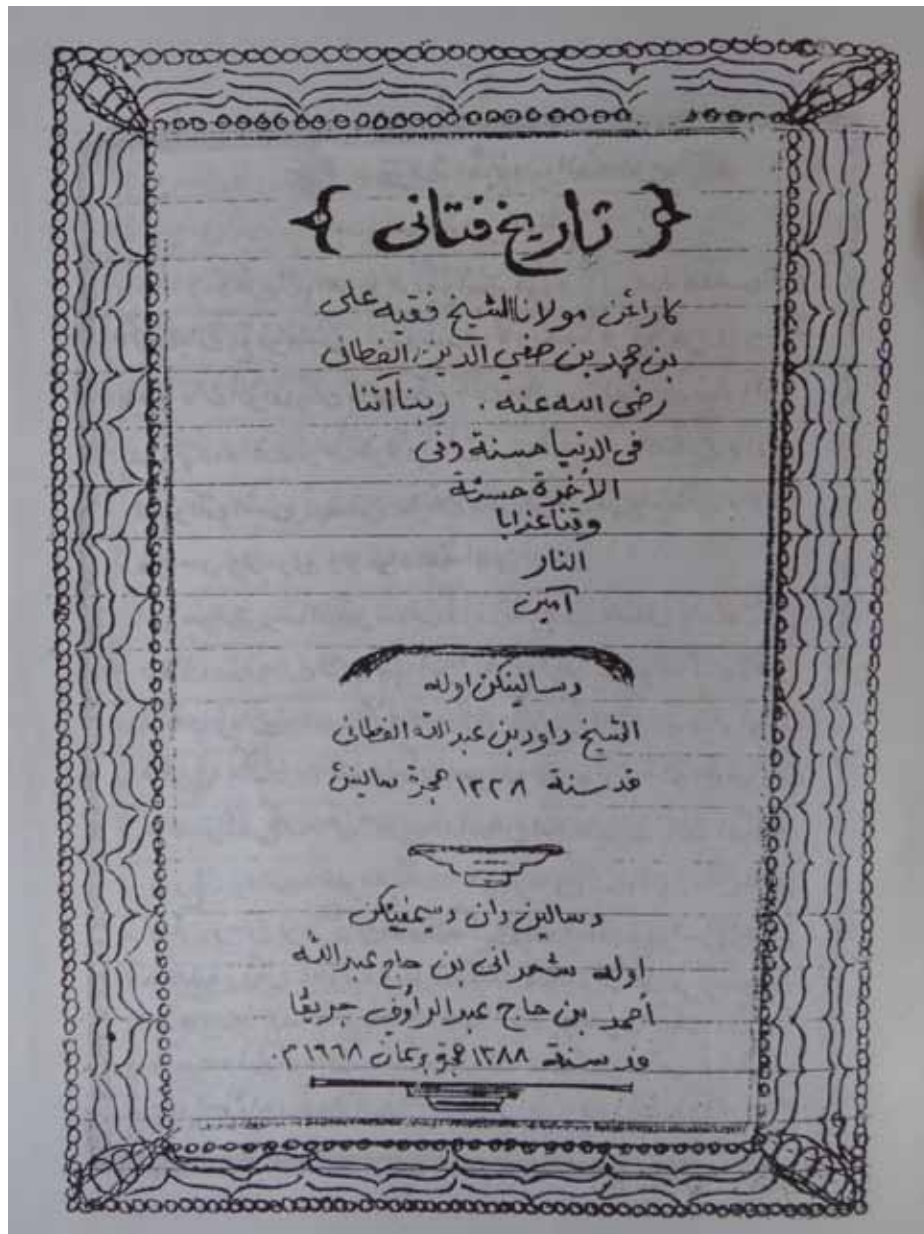 ﴿ تاريخ فتاني ﴾
كاراڠن مولانا الشيخ فقيه على
بن محمد بن صفي الدين الفطاني
رضى الله عنه . ربنا آتنا
فى الدنيا حسنة وفى
الأخرة حسنة
وقنا عذابا
النار
آمين
دسالينكن اوله
الشيخ داود بن عبد الله الفطاني
فد سنة ١٢٢٨ هجرة سالينن
دسالين دان ديمفينكن
اوله شحراني بن حاج عبد الله
أحمد بن حاج عبد الرأوف جريڠا
فد سنة ١٣٨٨ هجرة برتمان ١٩٦٨ م.